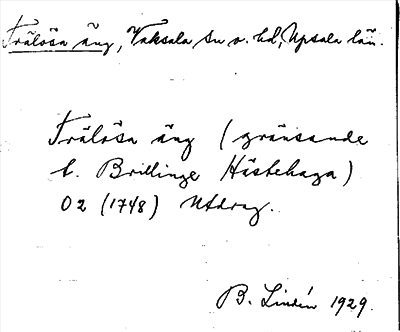 Trälösa äng, Vaksala sn o. hd, Upsala län.
Trälösa äng (gränsande
t. Brillinge Hästehaga)
O2 (1748) Utdrag.
B. Lindén 1929.